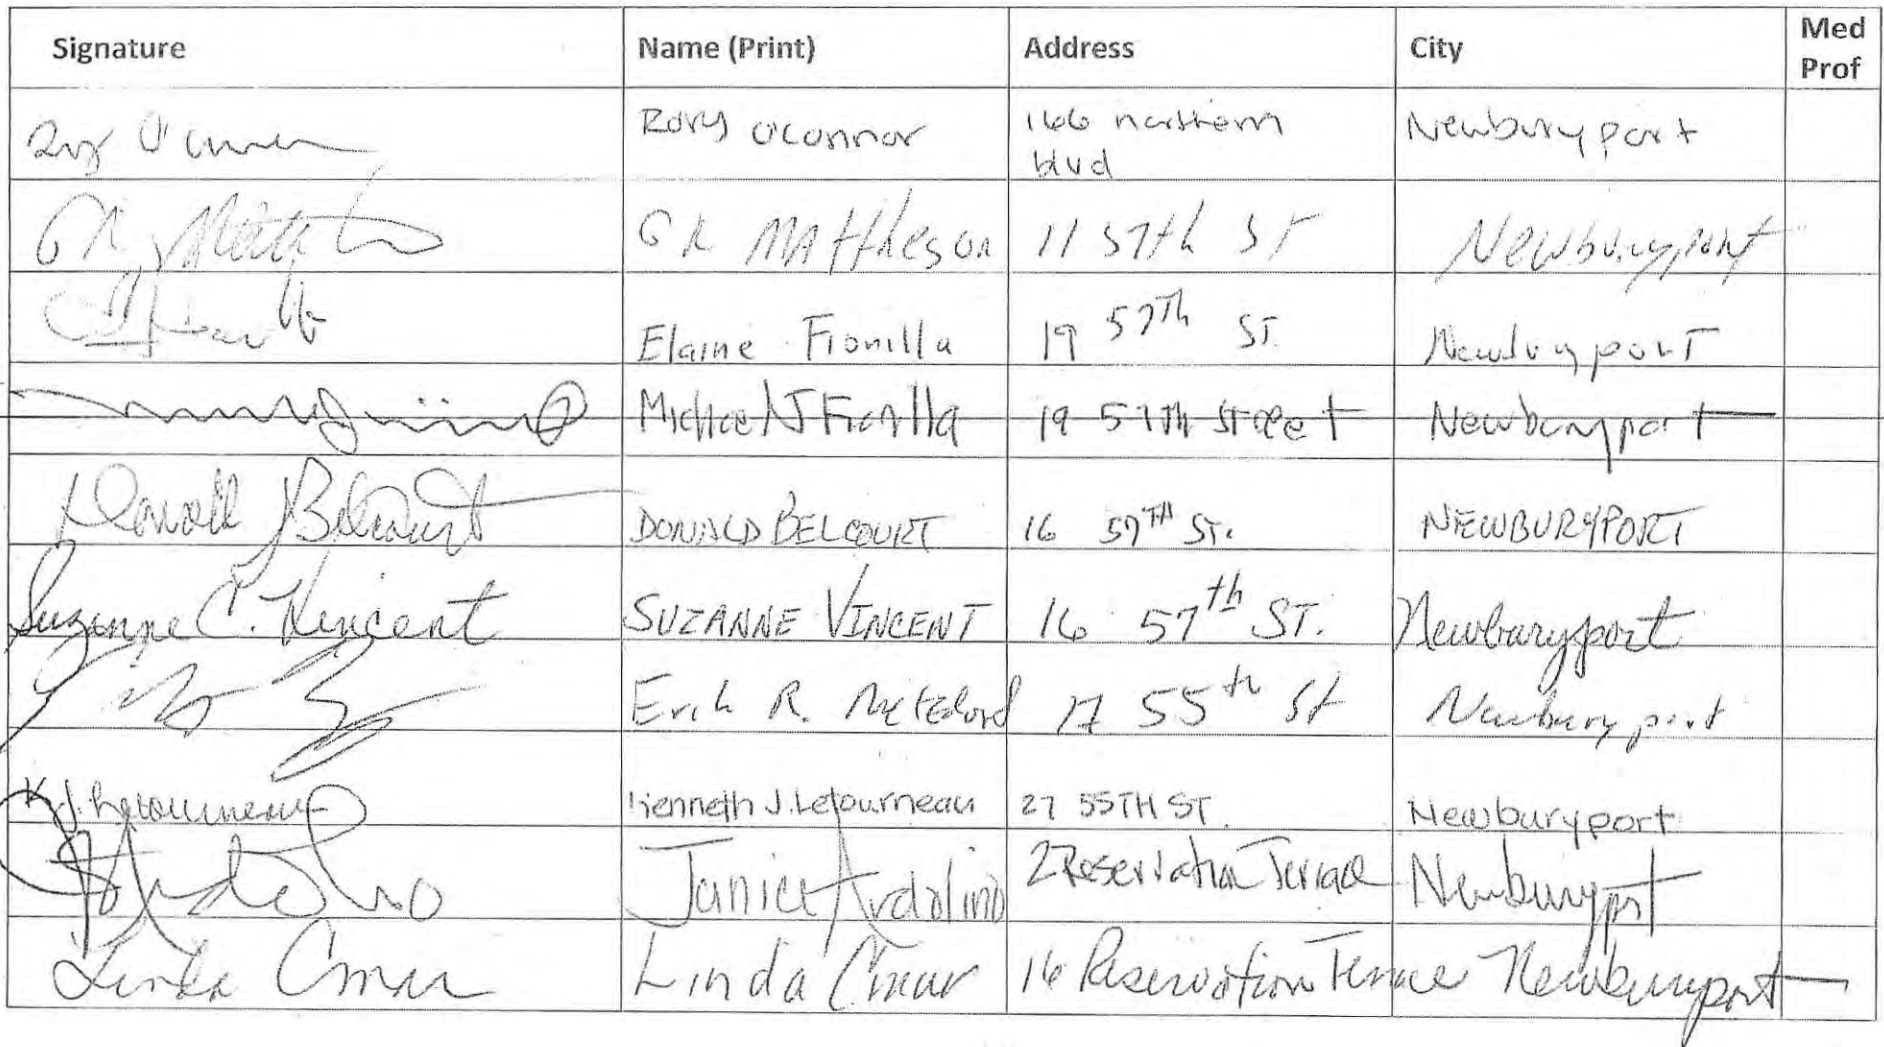 Signature Name (Print) Address City Med Prof
Rory O'Connor 166 northern blvd Newburyport
GR Matheson 11 57th St Newburyport
Elaine Fionilla 19 57th St. Newburyport
19 57th Street Newburyport
Donald Belcourt DONALD BELCOURT 16 57TH ST. NEWBURYPORT
Suzanne C. Vincent SUZANNE VINCENT 16 57th ST. Newburyport
Erik R. 17 55th St Newburyport
K.J. Letourneau Kenneth J. Letourneau 27 55TH ST. Newburyport
Janice Ardolino 2 Reservation Terrace Newburyport
Linda Cmar Linda Cmar 16 Reservation Terrace Newburyport